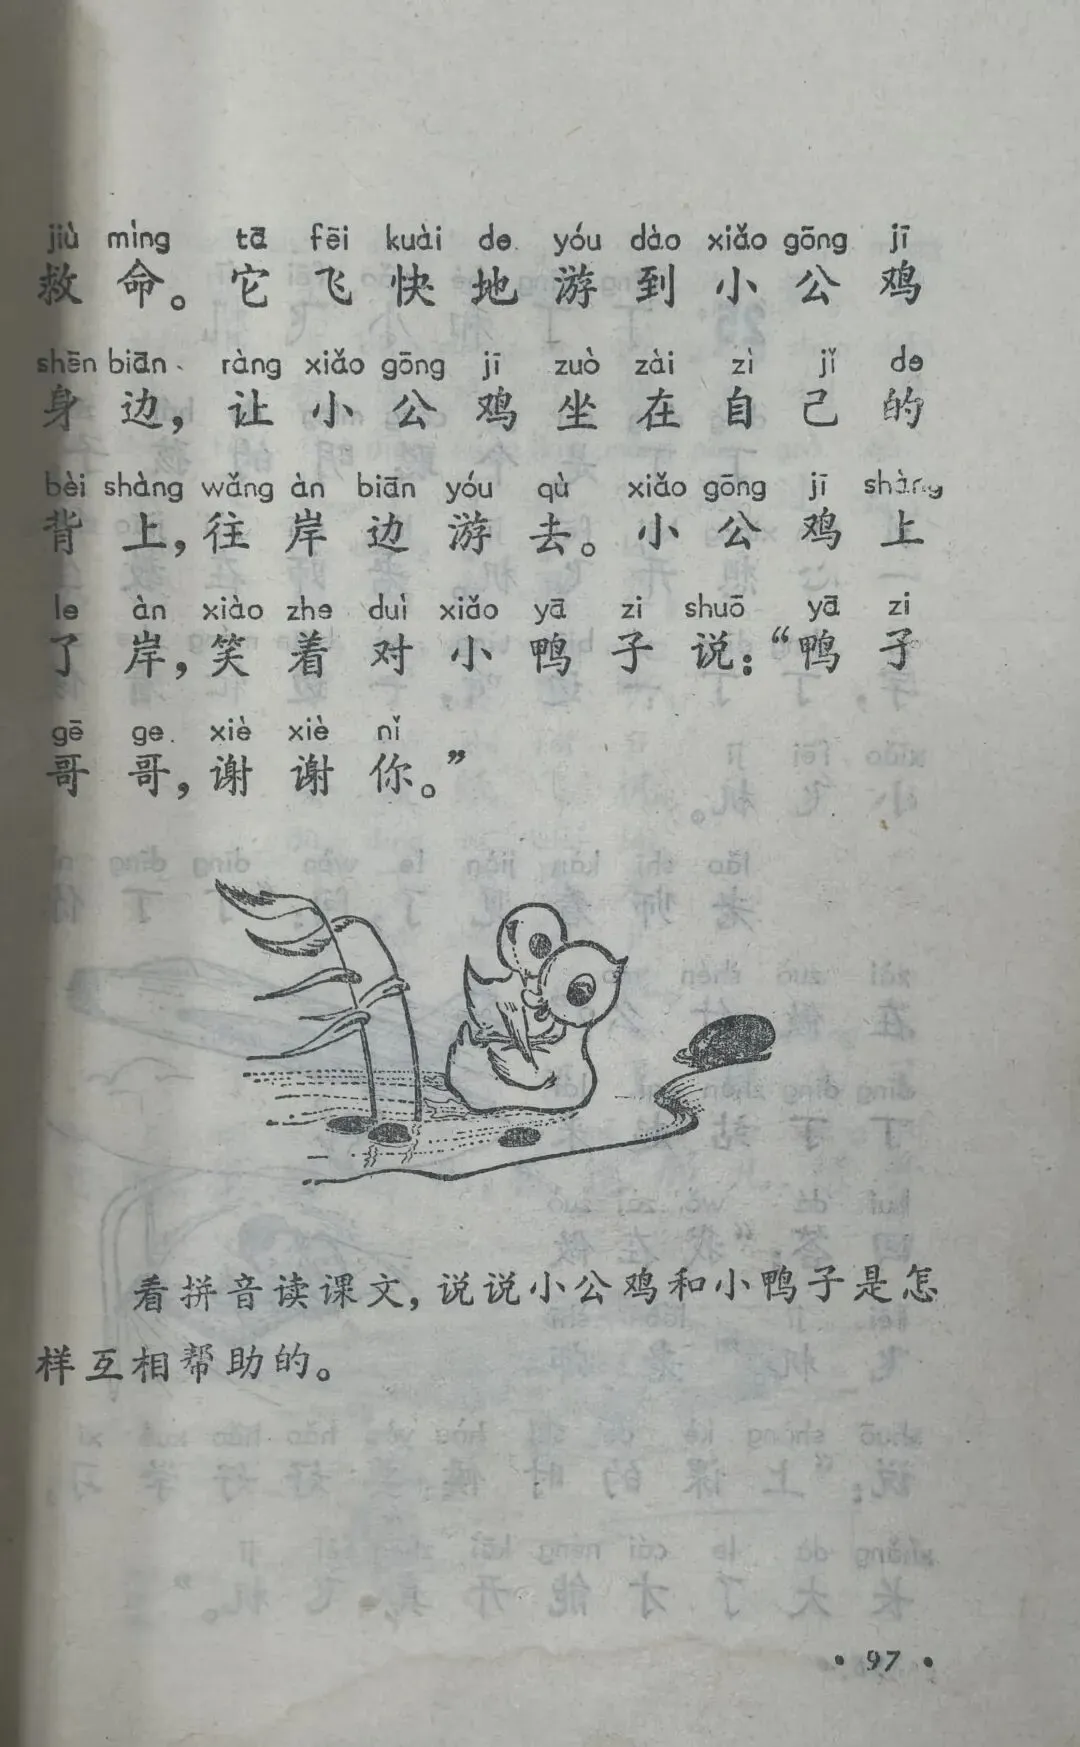 jiù mìng tā fēi kuài de yóu dào xiǎo gōng jī
救命。它飞快地游到小公鸡
shēn biān ràng xiǎo gōng jī zuò zài zì jǐ de
身边，让小公鸡坐在自己的
bèi shàng wǎng àn biān yóu qù xiǎo gōng jī shàng
背上，往岸边游去。小公鸡上
le àn xiào zhe duì xiǎo yā zi shuō yā zi
了岸，笑着对小鸭子说：“鸭子
gē ge xiè xiè nǐ
哥哥，谢谢你。”
看拼音读课文，说说小公鸡和小鸭子是怎
样互相帮助的。
• 97 •